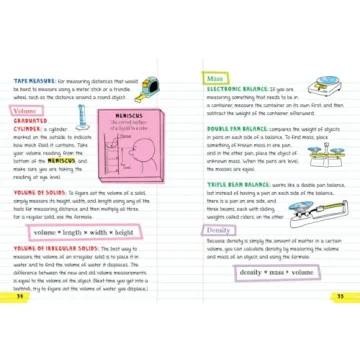 TAPE MEASURE: For measuring distances that would
be hard to measure using a meter stick or a trundle
wheel, such as the distance around a round object.
Volume
GRADUATED
CYLINDER: a cylinder
marked on the outside to indicate
how much fluid it contains. Take
your volume reading from the
bottom of the MENISCUS, and
make sure you are taking the
reading at eye level.
MENISCUS
the curved surface
of a liquid in a tube
VOLUME OF SOLIDS: To figure out the volume of a solid,
simply measure its height, width, and length using any of the
tools for measuring distance and then multiply all three.
For a regular solid, use the formula:
volume = length × width × height
VOLUME OF IRREGULAR SOLIDS: The best way to
measure the volume of an irregular solid is to place it in
water and to find the volume of water it displaces. The
difference between the new and old volume measurements
is equal to the volume of the object. (Next time you get into a
bathtub, try to figure out the volume of water you displace.)
34
Mass
ELECTRONIC BALANCE: If you are
measuring something that needs to be in
a container, measure the container on its own first, and then
subtract the weight of the container afterward.
DOUBLE PAN BALANCE: compares the weight of objects
in pans on each side of a balance. To find mass, place
something of known mass in one pan,
and in the other pan, place the object of
unknown mass. When the pans are level,
the masses are equal.
TRIPLE BEAM BALANCE: works like a double pan balance,
but instead of having a pan on each side of the balance,
there is a pan on one side, and
three beams, each with sliding
weights called riders, on the other.
Density
Because density is simply the amount of matter in a certain
volume, you can calculate density by measuring the volume
and mass of an object and using the formula:
density = mass ÷ volume
35